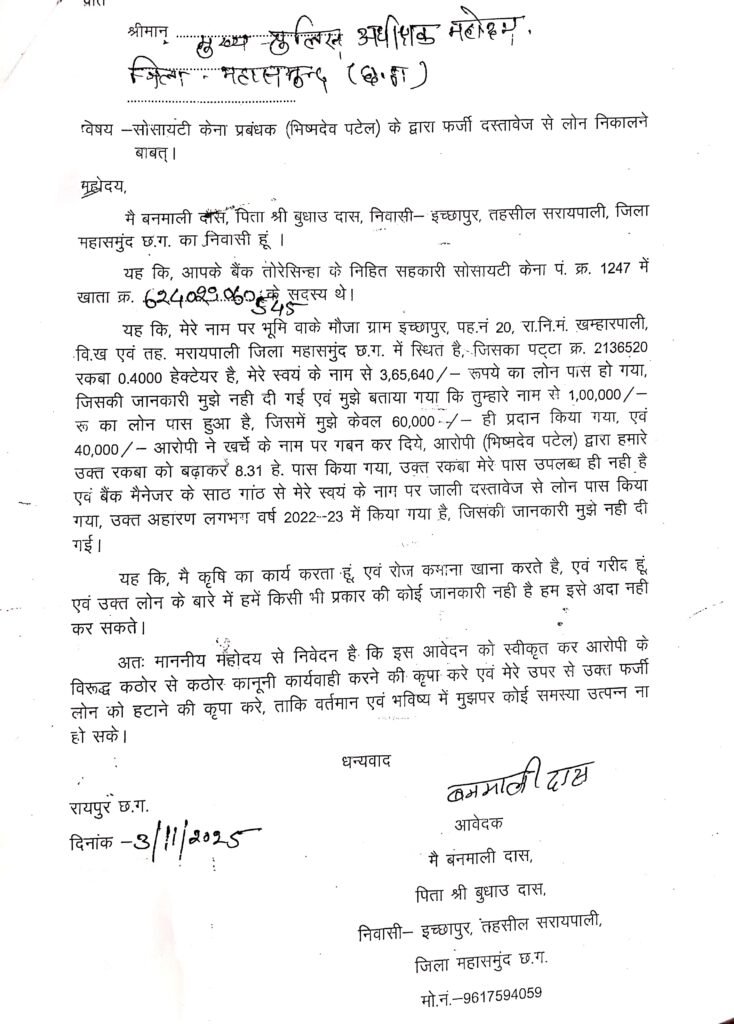 प्रति
श्रीमान् मुख्य पुलिस अधीक्षक महोदय.
जिला - महासमुन्द (छ.ग)
विषय –सोसायटी केना प्रबंधक (भिष्मदेव पटेल) के द्वारा फर्जी दस्तावेज से लोन निकालने
बाबत्।
महोदय,
मै बनमाली दास, पिता श्री बुधाउ दास, निवासी– इच्छापुर, तहसील सरायपाली, जिला
महासमुंद छ.ग. का निवासी हूं ।
यह कि, आपके बैंक तोरेसिन्हा के निहित सहकारी सोसायटी केना पं. क्र. 1247 में
खाता क्र. 624029060545 के सदस्य थे।
यह कि, मेरे नाम पर भूमि वाके मौजा ग्राम इच्छापुर, पह.नं 20, रा.नि.मं. खम्हारपाली,
वि.ख एवं तह. मरायपाली जिला महासमुंद छ.ग. में स्थित है, जिसका पट्टा क्र. 2136520
रकबा 0.4000 हेक्टेयर है, मेरे स्वयं के नाम से 3,65,640/– रूपये का लोन पास हो गया,
जिसकी जानकारी मुझे नही दी गई एवं मुझे बताया गया कि तुम्हारे नाम से 1,00,000/–
रू का लोन पास हुआ है, जिसमें मुझे केवल 60,000/– ही प्रदान किया गया, एवं
40,000/– आरोपी ने खर्चे के नाम पर गबन कर दिये, आरोपी (भिष्मदेव पटेल) द्वारा हमारे
उक्त रकबा को बढ़ाकर 8.31 हे. पास किया गया, उक्त रकबा मेरे पास उपलब्ध ही नही है
एवं बैंक मैनेजर के साठ गांठ से मेरे स्वयं के नाग पर जाली दस्तावेज से लोन पास किया
गया, उक्त अहारण लगभग वर्ष 2022–23 में किया गया है, जिसकी जानकारी मुझे नही दी
गई।
यह कि, मै कृषि का कार्य करता हूं, एवं रोज कमाना खाना करते है, एवं गरीद हूं,
एवं उक्त लोन के बारे में हमें किसी भी प्रकार की कोई जानकारी नही है हम इसे अदा नही
कर सकते।
अतः माननीय महोदय से निवेदन है कि इस आवेदन को स्वीकृत कर आरोपी के
विरूद्ध कठोर से कठोर कानूनी कार्यवाही करने की कृपा करे एवं मेरे उपर से उक्त फर्जी
लोन को हटाने की कृपा करे, ताकि वर्तमान एवं भविष्य में मुझपर कोई समस्या उत्पन्न ना
हो सके।
धन्यवाद
बनमाली दास
रायपुर छ.ग.
दिनांक –3/11/2025
आवेदक
मै बनमाली दास,
पिता श्री बुधाउ दास,
निवासी– इच्छापुर, तहसील सरायपाली,
जिला महासमुंद छ.ग.
मो.नं.–9617594059